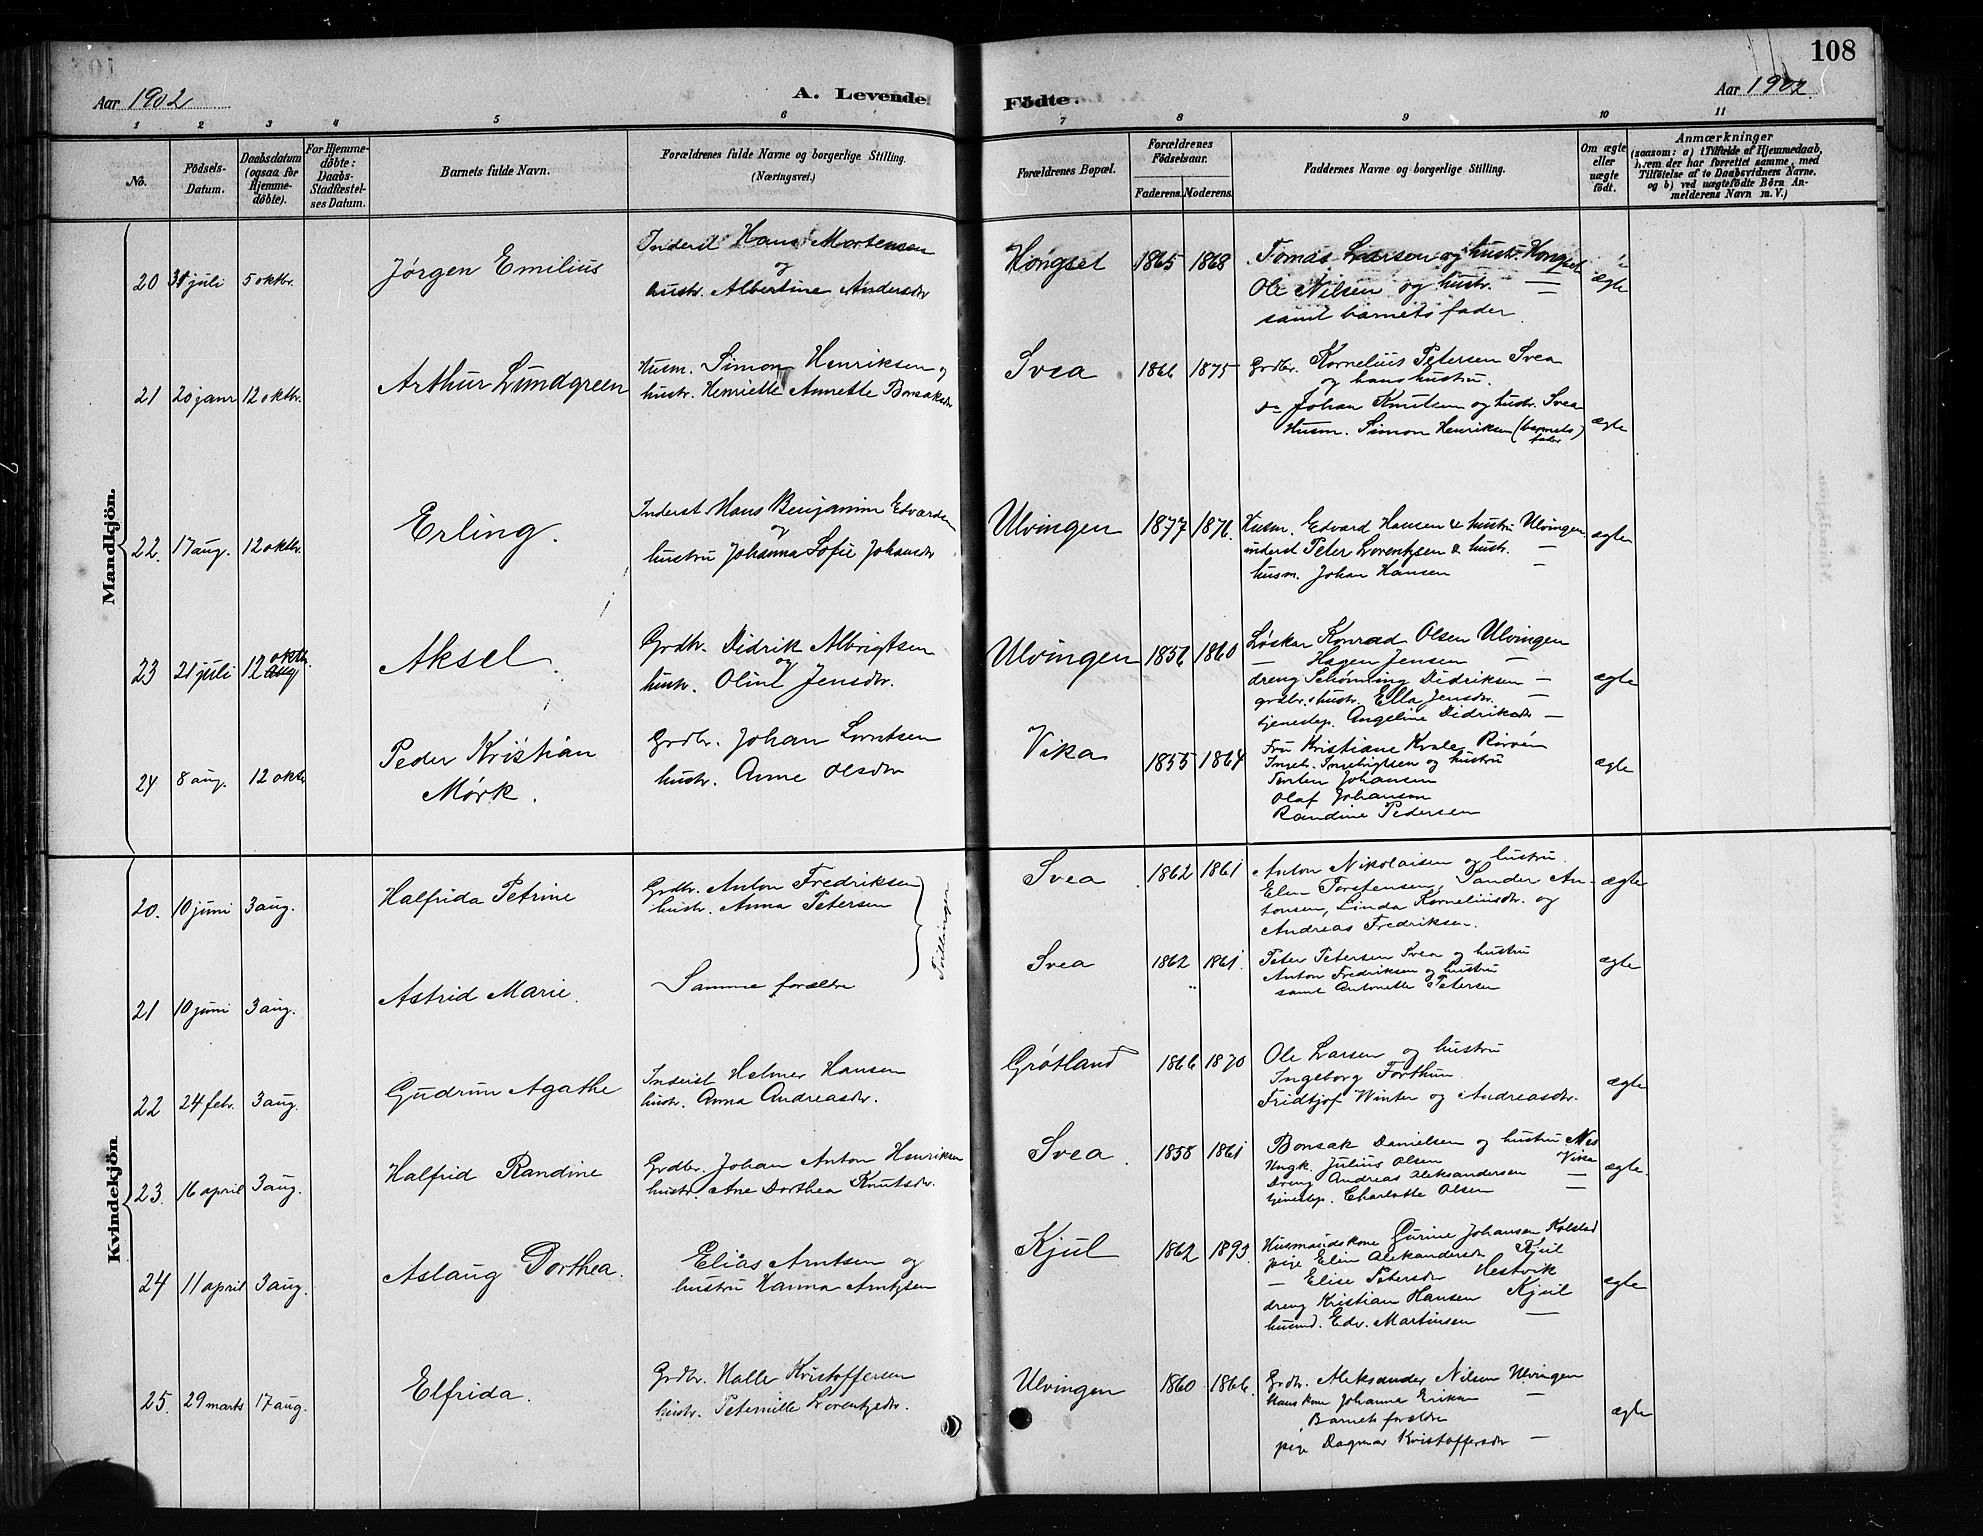 108
Aar 1902
A. Levende Födte.
Aar 1902.
1 2 3 4 5 6 7 8 9 10 11
No.
Födsels-
Datum.
Daabsdatum
(ogsaa for
Hjemme-
døbte).
For Hjemme-
døbte:
Daabs-
Stadfæstel-
ses Datum.
Barnets fulde Navn.
Forældrenes fulde Navne og borgerlige Stilling.
(Næringsvei.)
Forældrenes Bopæl.
Forældrenes
Födselsaar.
Faderens. Moderens.
Faddernes Navne og borgerlige Stilling.
Om ægte
eller
uægte
födt.
Anmærkninger
(saasom: a) i Tilfælde af Hjemmedaab,
hvem der har forrettet samme, med
Tilföielse af to Daabsvidners Navne,
og b) ved uægtefödte Börn An-
melderens Navn m. V.)
Mandkjön.
20 31 juli 5 oktbr. Jørgen Emilius
Inderst Hans Mortensen
og
hustr. Albertine Andersdr
Hongset 1865 1868
Tomas Larsen og hustr. Hongset
Ole Nilsen og hustr. —
samt barnets fader.
ægte
21 20 janr 12 oktbr. Arthur Lundgreen
Husm. Simon Henriksen og
hustr. Henriette Annette Bonsaksdr
Svea 1866 1875
Grdbr. Kornelius Petersen Svea
og hans hustru.
Johan Knutsen og hustr. Svea
Husm. Simon Henriksen (barnets
fader)
ægte
22. 17 aug. 12 oktbr. Erling.
Inderst Hans Benjamin Edvardsen
og
hustru Johanna Sofie Johansdr
Ulvingen 1877 1876.
Husm. Edvard Hansen & hustru Ulvingen
inderst Peter Lorentzen & hustr. —
husm. Johan Hansen —
ægte
23 21 juli 12 oktbr. Aksel.
Grdbr. Didrik Albrigtsen
og
hustr. Oline Jensdr.
Ulvingen 1856 1860
Løskar Konrad Olsen Ulvingen
— Hagen Jensen —
dreng Schønning Didriksen —
grdbr.s hustr. Ella Jensdr. —
tjenestep. Angeline Didriksdr —
ægte
24 8 aug. 12 oktr Peder Kristian
Mørk.
Grdbr. Johan Lorntsen
hustr. Anne Olsdr
Vika 1855 1864
Fru Kristiane Kvale, Rørøen
Ingeb. Ingebrigtsen og hustru
Torsten Johansen
Olaf Johanson
Randine Pedersen
ægte
Kvindekjön.
20. 10 juni 3 aug. Halfrida Petrine
Grdbr. Anton Fredriksen
hustr. Anna Petersen
Tvillinger
Svea 1862 1861
Anton Nikolaisen og hustru.
Elen Torstensen, Sander An-
tonsen, Linda Korneliusdr. og
Andreas Fredriksen.
ægte
21 10 juni 3 aug. Astrid Marie.
Samme forældre
Svea 1862 1861.
Peter Petersen Svea og hustru
Anton Fredriksen og hustru
samt Antonette Petersen
ægte
22 24 febr. 3 aug. Gudrun Agathe
Inderst Helmer Hansen
hustr. Anna Andreasdr.
Grøtland 1866 1870
Ole Larsen og hustru
Ingeborg Forthun.
Fridtjof Winter og Andreasdr.
ægte
23. 16 april 3 aug. Halfrid Randine
Grdbr. Johan Anton Henriksen
hustr. Ane Dorthea Knutsdr.
Svea. 1858 1861
Bonsak Danielsen og hustru Nes
Ungk. Julius Olsen Vika
Dreng Andreas Aleksandersen —
tjenestep. Charlotte Olsen —
ægte
24 11 april 3 aug. Aslaug Dorthea.
Elias Arntsen og
hustru Hanna Arntzsen
Kjul 1862 1893.
Husmandskone Gurine Johansen Kolstad
pige Elin Aleksandersdr Kjul
— Elise Petersdr Hestvik
dreng Kristian Hansen Kjul
husmd. Edv. Martinsen —
ægte
25. 29 marts 17 aug. Elfrida.
Grdbr. Halle Kristoffersen
hustr. Peternille Lorentzdr.
Ulvingen 1860 1866.
Grdbr. Aleksander Nilsen Ulvingen
Hans kone Johanna Erika —
Barnets forældre
pige Dagmar Kristoffersdr —
ægte